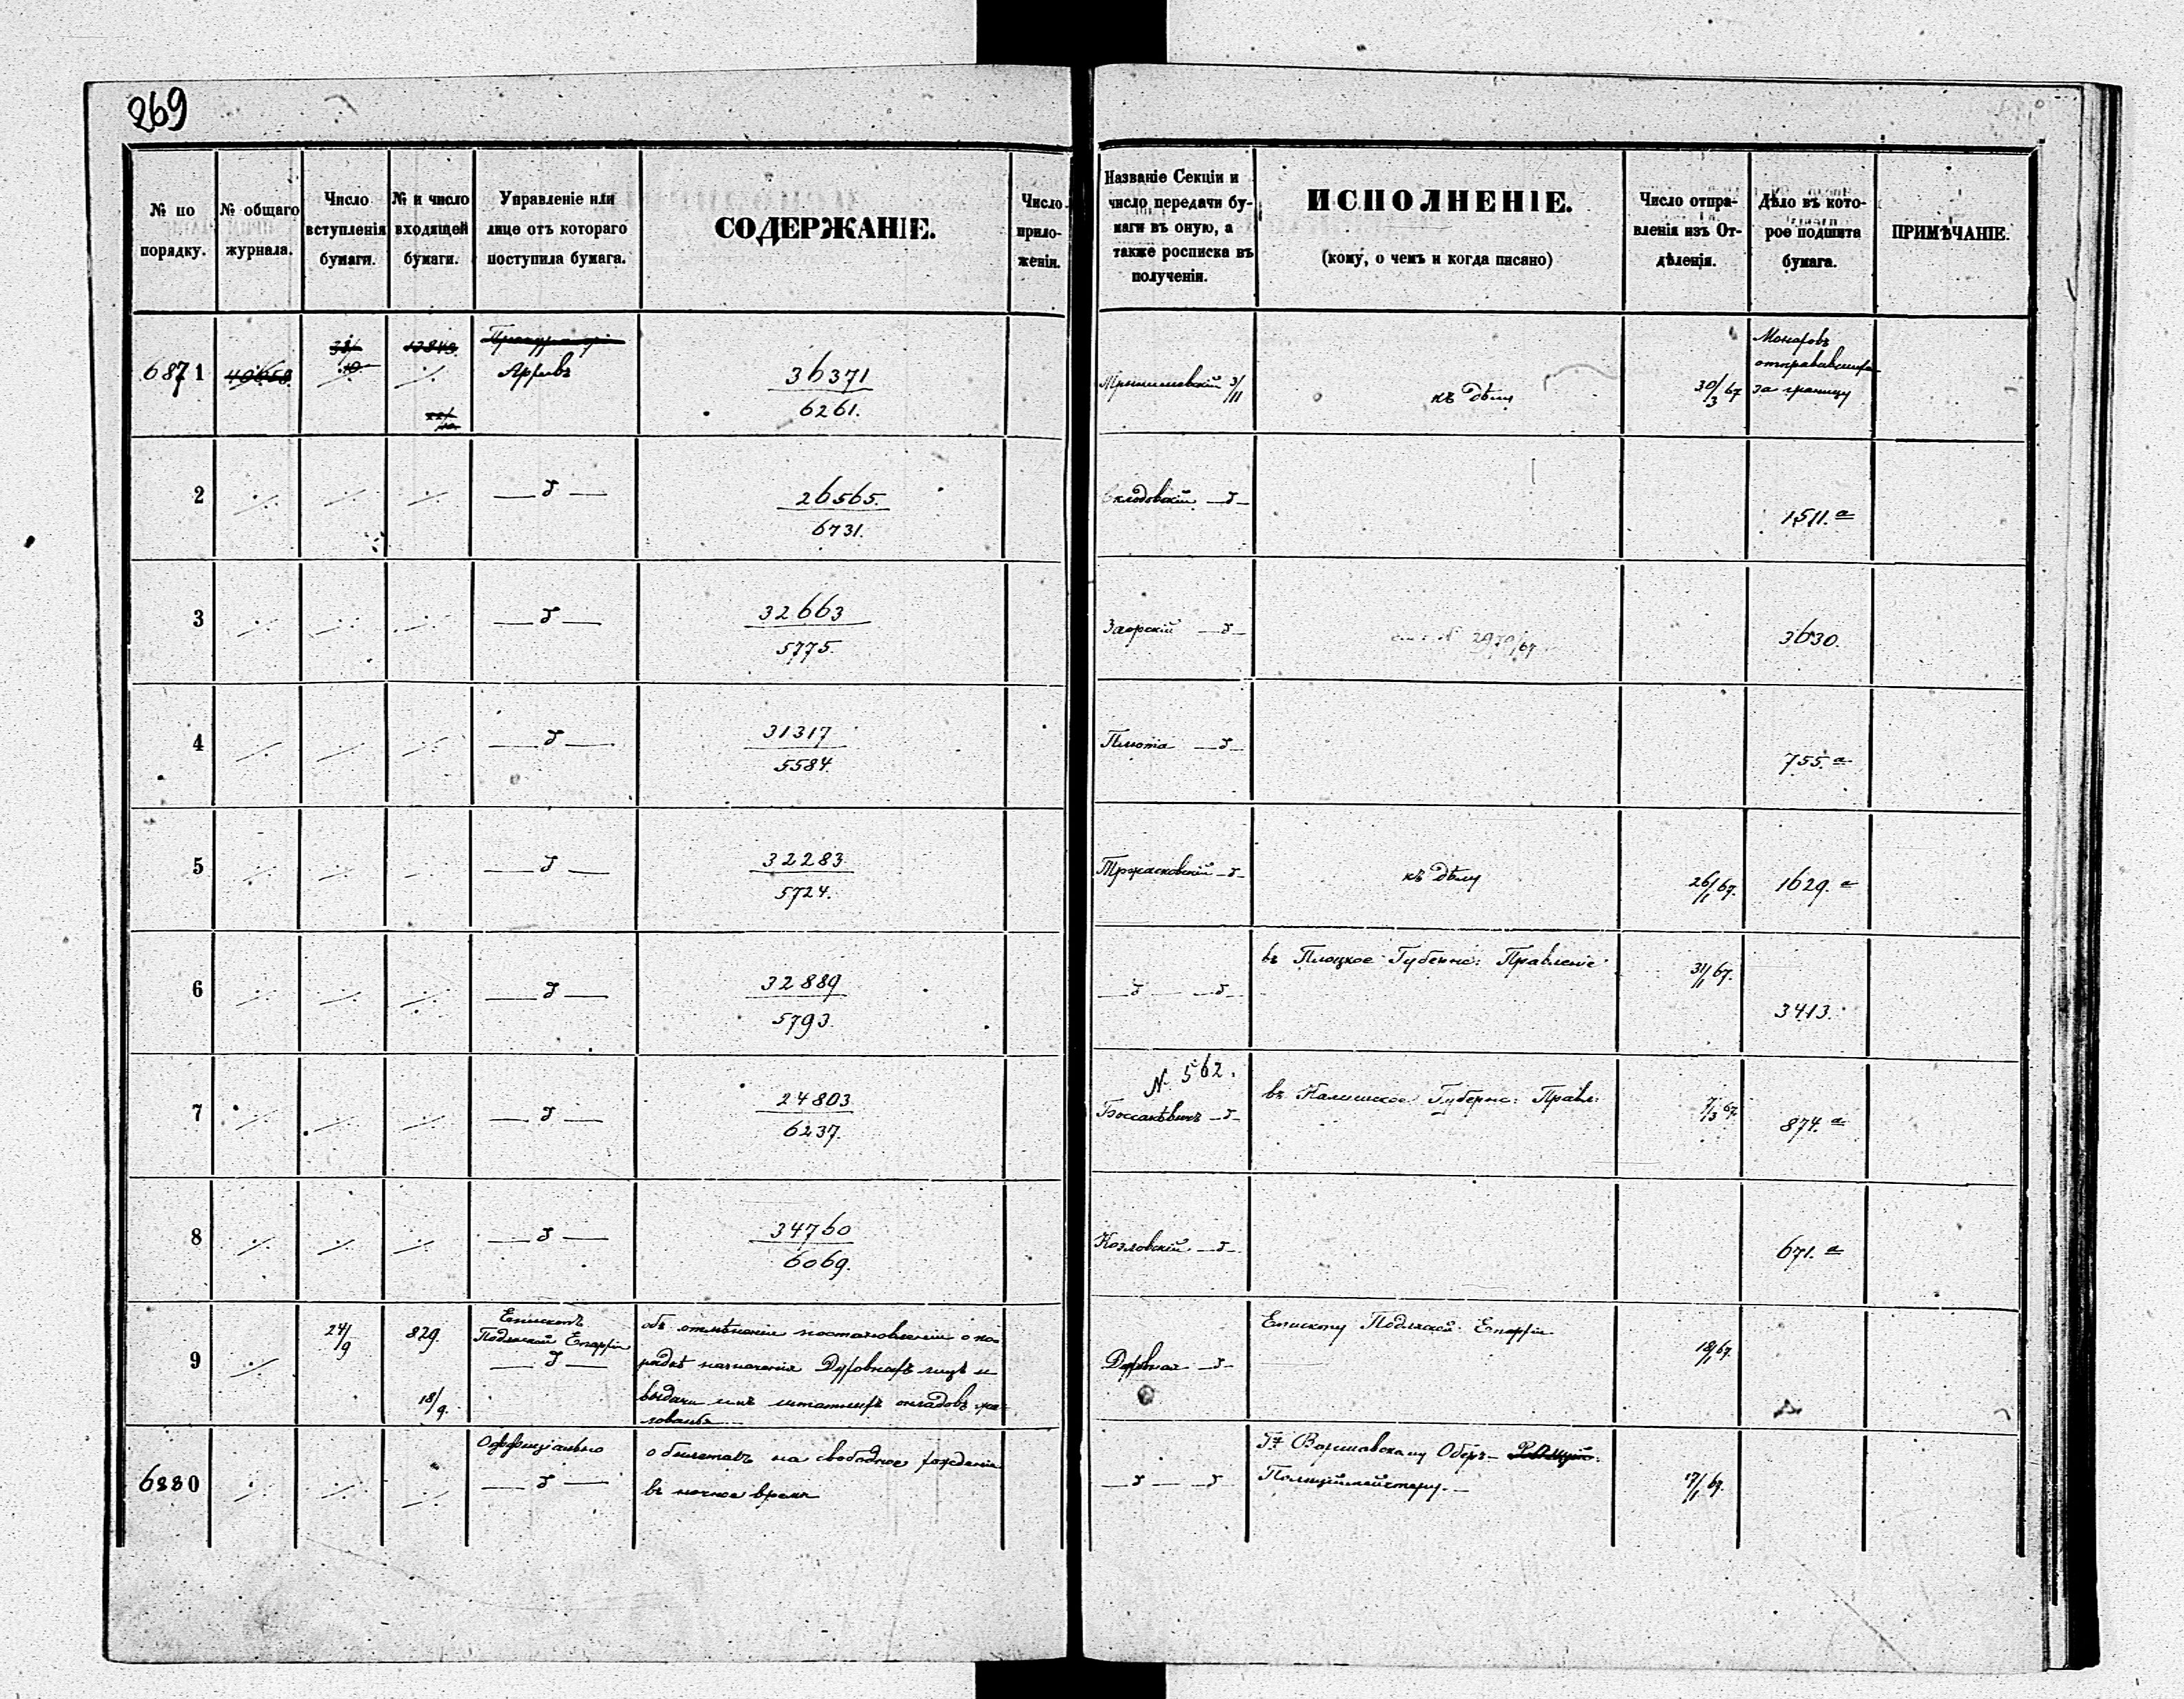 269
№ по порядку.
№ общаго журнала.
Число вступленія бумаги.
№ и число входящей бумаги.
Управленіе или лице отъ котораго поступила бумага.
СОДЕРЖАНІЕ.
Число приложенія.
Названіе Секціи и число передачи бумаги въ оную, а также росписка въ полученіи.
ИСПОЛНЕНІЕ.
(кому, о чемъ и когда писано)
Число отправленія изъ Отдѣленія.
Дѣло въ которое подшита бумага.
ПРИМѢЧАНІЕ.
6871 40658 Архивъ 36371 / 6261. 3/11 къ дѣлу 30/3 67 Монаховъ отправившихся за границу
2 26565. / 6731. 1511.а
3 32663 / 5775. Заорскій 2970/67 3630.
4 31317 / 5584. 755.а
5 32283 / 5724. къ дѣлу 26/1 67. 1629.а
6 32889 / 5793. въ Плоцкое Губернс: Правленіе 31/1 67. 3413.
7 24803 / 6237. № 562. въ Калишское Губернс: Правл: 7/3 67. 874.а
8 34760 / 6069. Козловскій 671.а
9 24/9 829. 18/9. Епископъ Подляской Епархіи
объ отмѣненіи постановленія о по-
рядкѣ назначенія Духовныхъ лицъ и
выдачи имъ штатныхъ окладовъ жа-
лованья
Духовная Епископу Подляской Епархіи 18/1 67.
6880 Оффиціально
о билетахъ на свободное хожденіе
въ ночное время
Гну Варшавскому Оберъ-
Полиціймейстеру. 17/1 67.